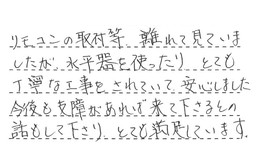 リモコンの取付等 離れて見ていま
したが、水平器を使ったり とても
丁寧な工事をされていて 安心しました
今後も支障があれば来て下さるとの
話もして下さり とても満足しています。